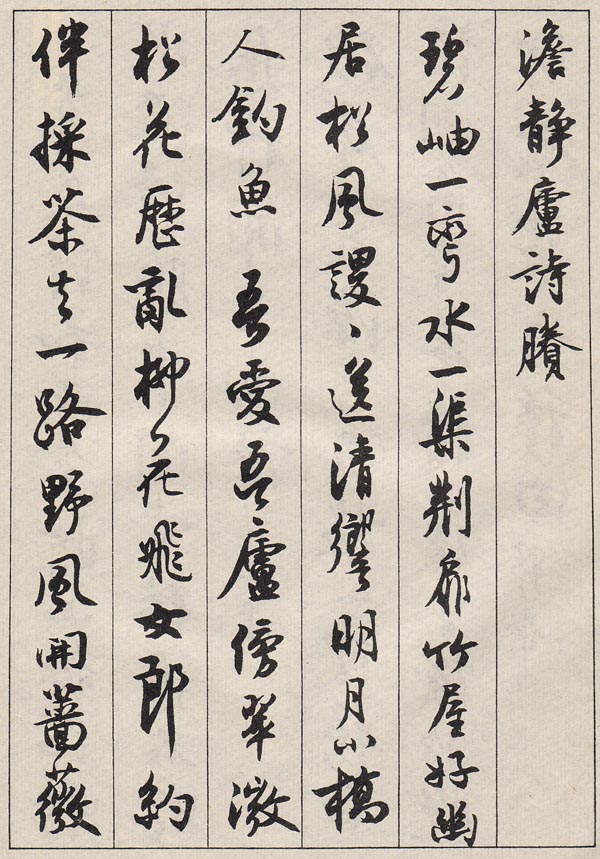 澹靜廬詩賸
碧岫一彎水一渠荆扉竹屋好幽
居松風謖〻送清響明月小橋
人釣魚　吾愛吾廬傍翠微
松花歷亂柳花飛女郎約
伴採茶去一路野風開薔薇